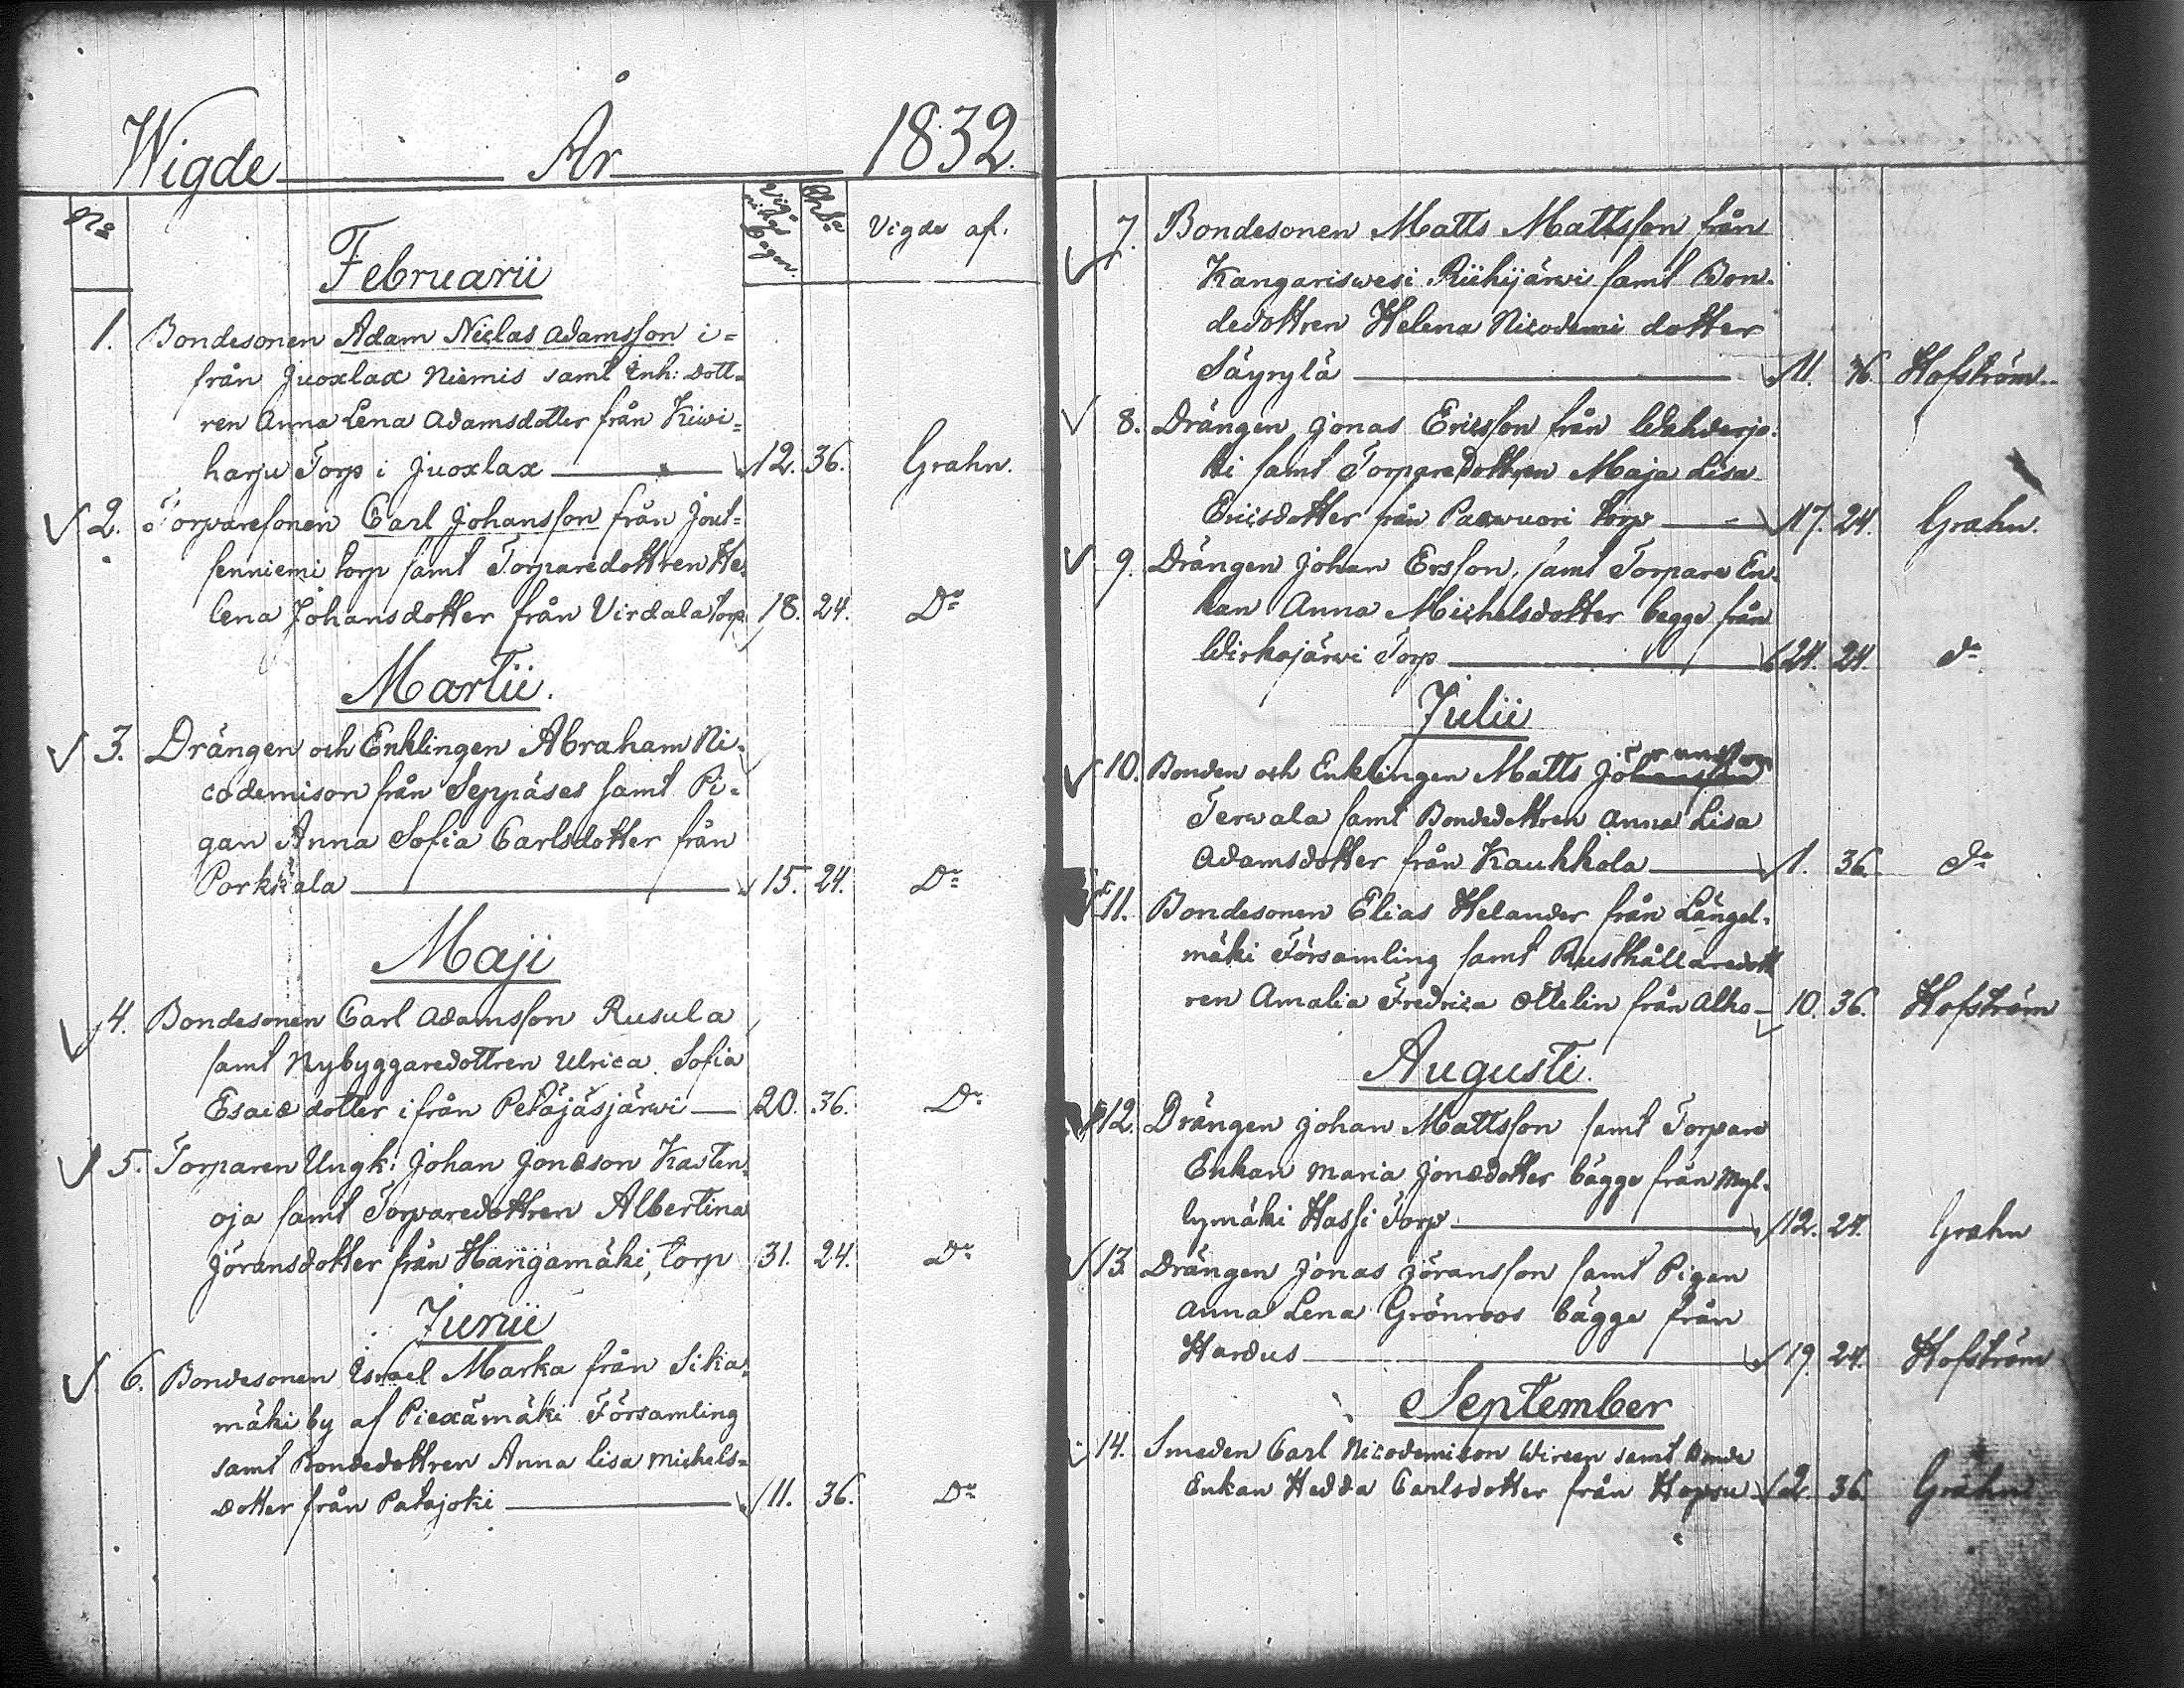 Wigde År 1832.
No Vig- nings dagen Vigde af.
Februarii
1. Bondesonen Adam Niclas Adamsson i=
från Juoxlax Niemis samt Inh: Dott=
ren Anna Lena Adamsdotter från Kiwi=
harju Torp i Juoxlax 12. 36. Grahn.
2. Torparesonen Carl Johansson från Jout=
senniemi torp samt Torparedottren He=
lena Johansdotter från Virdala torp 18. 24. Do
Martii.
3. Drängen och Enklingen Abraham Ni=
codemison från Seppäses samt Pi=
gan Anna Sofia Carlsdotter från
Porkkala 15. 24. Do
Maji
4. Bondesonen Carl Adamsson Rusula
samt Nybyggaredottren Ulrica Sofia
Esaiædotter ifrån Petäjäsjärwi 20. 36. Do
5. Torparen Ungk: Johan Jonæson Kasten=
oja samt Torparedottren Albertina
Jöransdotter från Harjamäki torp 31. 24. Do
Junii
6. Bondesonen Israel Marka från Sika=
mäki by af Piexämäki Församling
samt Bondedottren Anna Lisa Michels=
dotter från Patajoki 11. 36. Do
7. Bondesonen Matts Mattsson från
Kangariswesi Riihijärwi samt Bon=
dedottren Helena Nicodemi dotter
Säyrylä 11. 36. Hofström
8. Drängen Jonas Ericsson från
samt Torparedottren Maja Lisa
Ericsdotter från Paawuori torp 17. 24. Grahn.
9. Drängen Johan Ersson, samt Torpare En=
kan Anna Michelsdotter begge från
Wirkajärwi Torp 24. 24. do
Julii
10. Bonden och Enklingen Matts Göransson
Terwala samt Bondedottren Anna Lisa
Adamsdotter från Kauhkola 1. 36. do
11. Bondesonen Elias Helander från Längel=
mäki Församling samt Rusthållaredott
ren Amalia Fredrica Ottelin från Alho 10. 36. Hofström
Augusti.
12. Drängen Johan Mattsson samt Torpare
Enkan Maria Jonædotter bägge från Myl=
lymäki Hassi Torp 12. 24. Grahn
13 Drängen Jonas Jöransson samt Pigan
Anna Lena Grönroos bägge från
Hardus 19. 24. Hofström
September
14. Smeden Carl Nicodemison Wireen samt Bonde
Enkan Hedda Carlsdotter från Hopsu 2. 36. Grahn